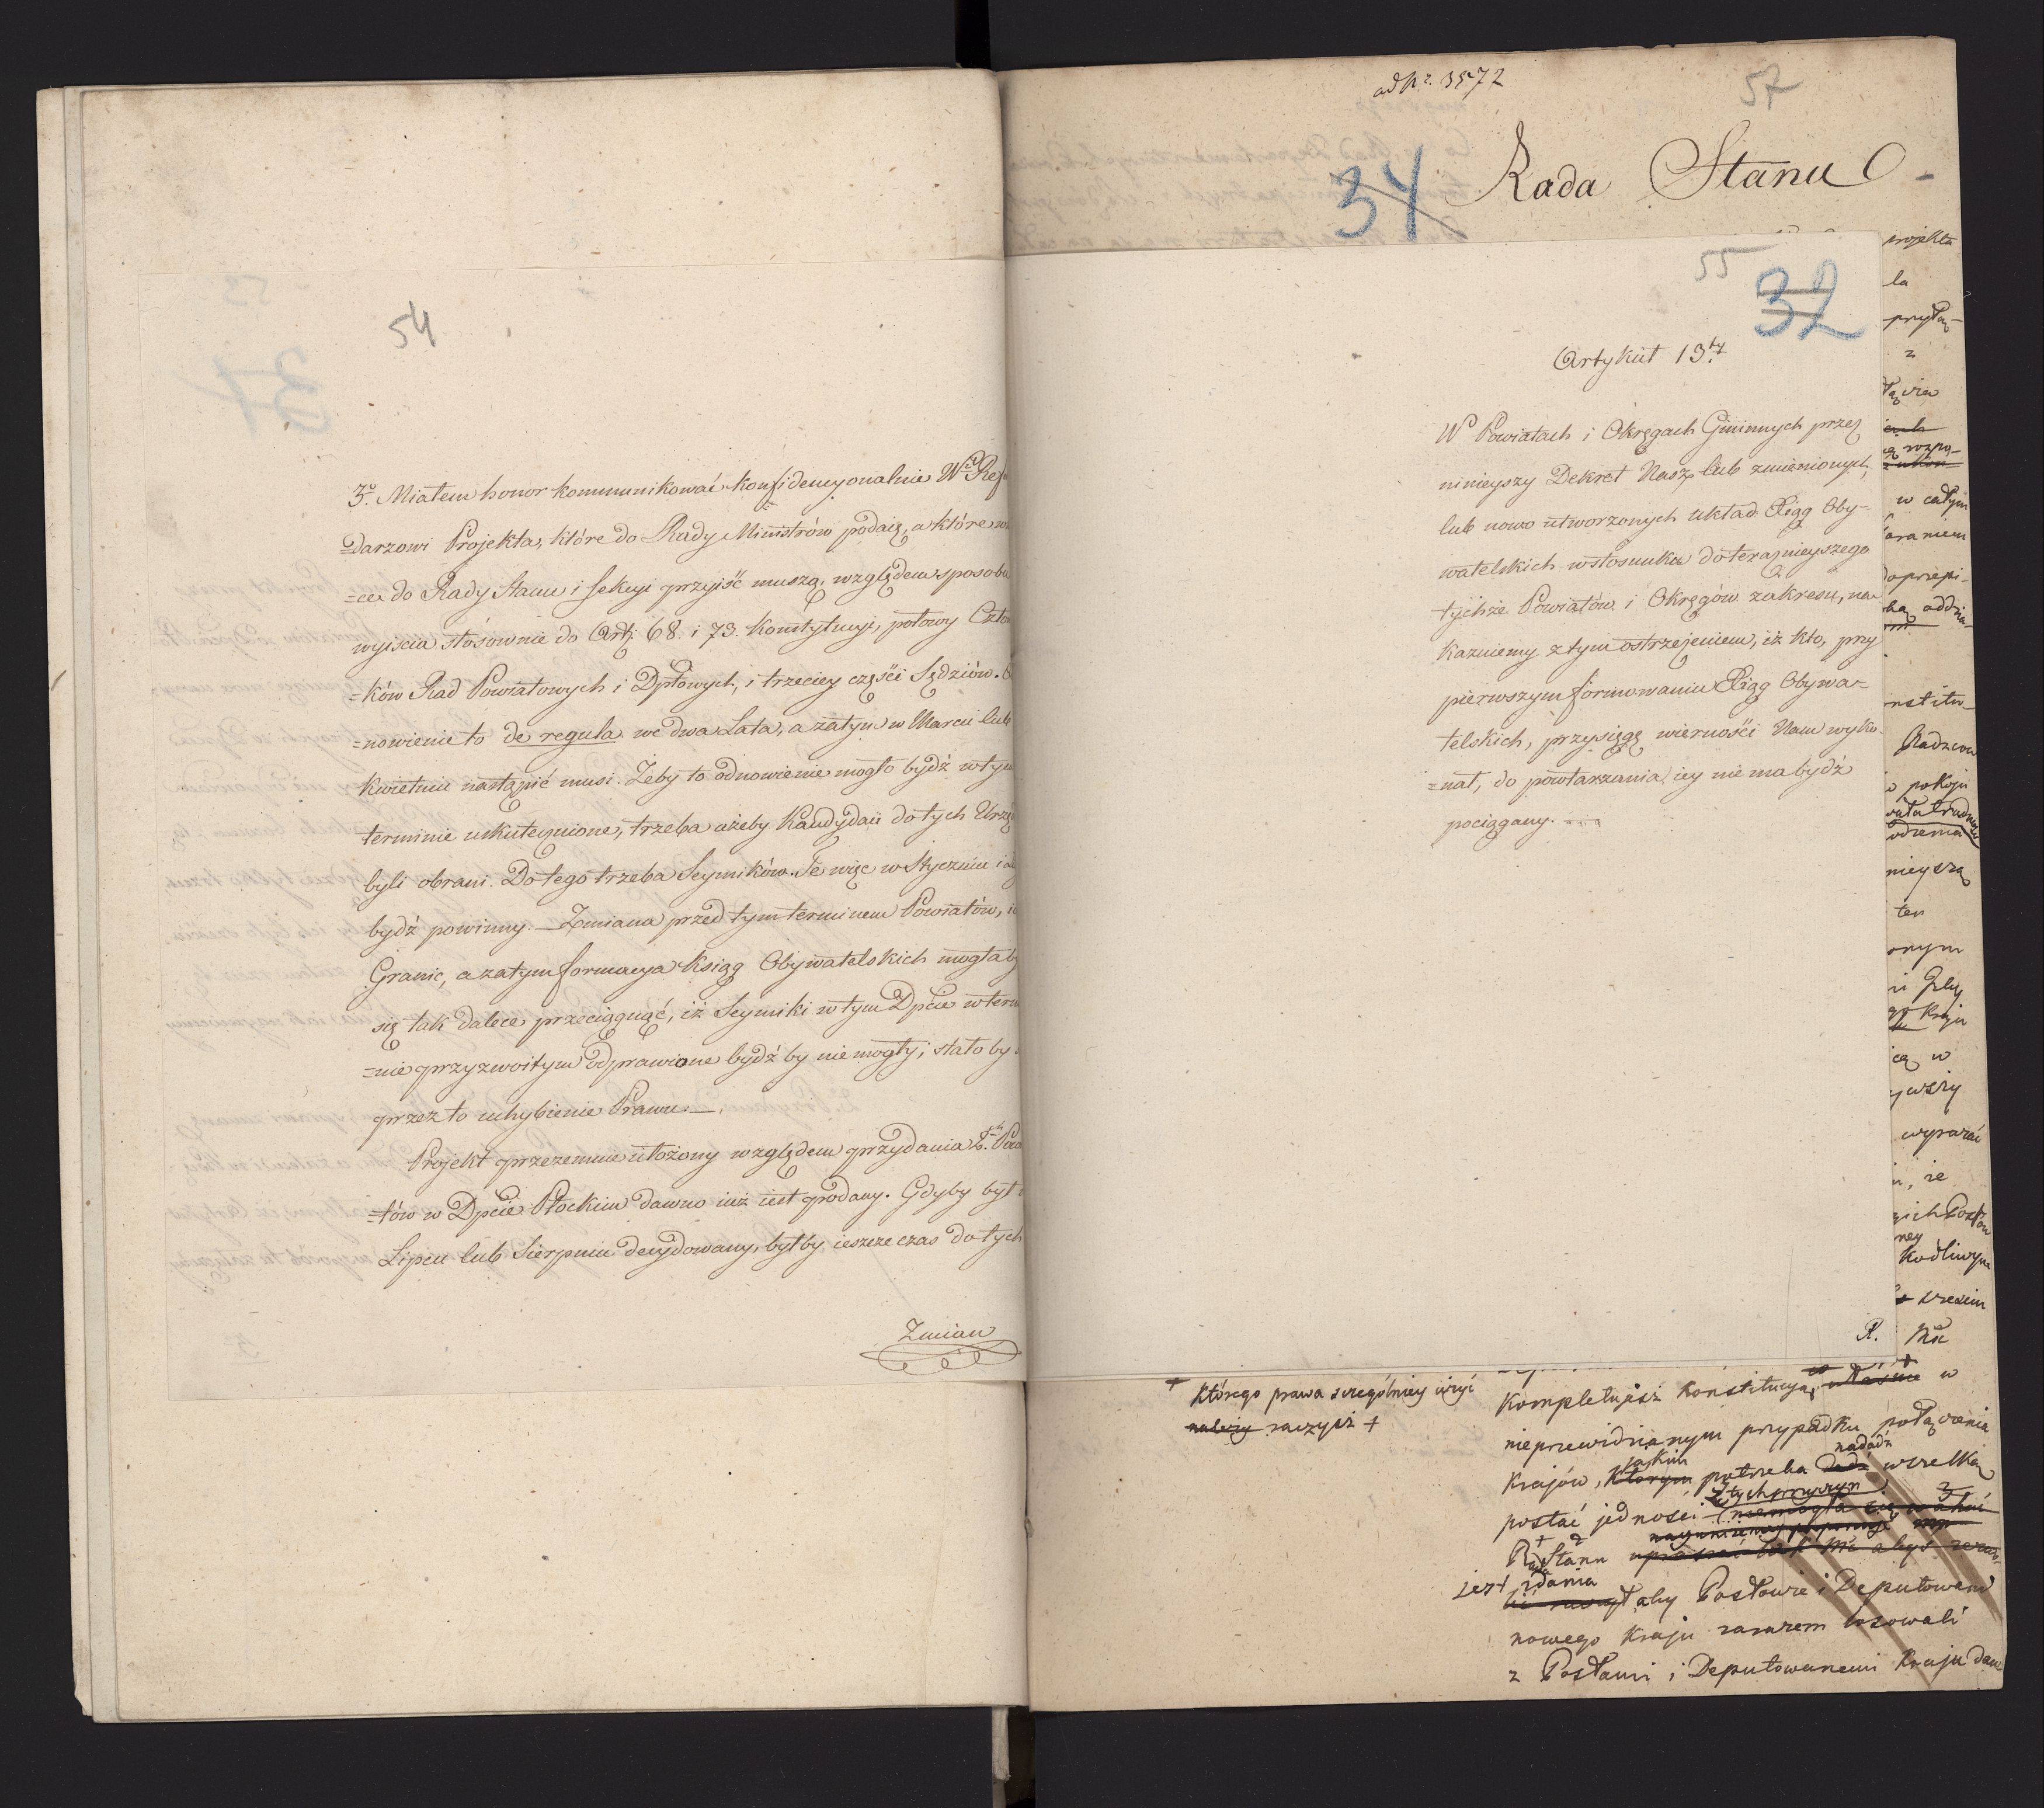 54
3º. Miałem honor kommunikować konfidencyonalnie Wu Refe
darzowi Projekta, które do Rady Ministrów podaię, a które
=ce do Rady Stanu i Sekcyi przyiść muszą, względem sposobu
wyiscia stosownie do Art: 68. i 73. Konstytucyi, połowy Człon
=ków Rad Powiatowych i Dptowych, i trzeciey części Sędziów.
=nowienie to de regula we dwa Lata, a zatym w Marcu lub
Kwietniu nastąpić musi. Żeby to odnowienie mogło bydź w tym
terminie uskutecznione, trzeba ażeby Kandydaci do tych Urzę
byli obrani. Do tego trzeba Seymików. Te więc w Styczniu
bydź powinny. — Zmiana przed tym terminem Powiatów,
Granic, a zatym formacya Ksiąg Obywatelskich mogłaby
się tak dalece przeciągnąć, iż Seymiki w tym Dpcie w term
=nie przyzwoitym odprawione bydź by nie mogły; stało by
przez to uchybienie Prawu. —
Projekt przezemnie ułożony względem przydania 2ch Powia
=tów w Dpcie Płockim dawno iuż iest podany. Gdyby był
Lipcu lub Sierpniu decydowany, byłby ieszcze czas do tych
Zmian
ad Nr. 3572
57
34
Rada Stanu
55
32
Artykuł 13ty
W Powiatach i Okręgach Gminnych przez
ninieyszy Dekret Nasz lub zmienionych,
lub nowo utworzonych układ Xiąg Oby-
watelskich w stosunku do teraznieyszego
tychże Powiatów i Okręgów zakresu, na-
kazuiemy z tym ostrzeżeniem, iż kto, przy
pierwszym formowaniu Xiąg Obywa-
telskich, przysięgę wierności Nam wyko-
=nał, do powtarzania iey nie ma bydź
pociągany.
rojekta
la
w całym
nstitu-
Radzcom
pokoju
nieyszą
ten
onym
kraju
w
wyrazić
że
kodliwym
R.
+ którego prawa szczególniey użyć
należy raczysz +
kompletujesz Konstitucyą właśnie w
nieprzewidzianym przypadku połączenia
nadadź
krajów, którym potrzeba dadź wszelką
z tych przyczyn
postać jedności nie mogła się wahać
R Stanu
jest zdania
aby Posłowie i Deputowani
nowego Kraju zarazem losowali
z Posłami i Deputowanemi Kraju daw